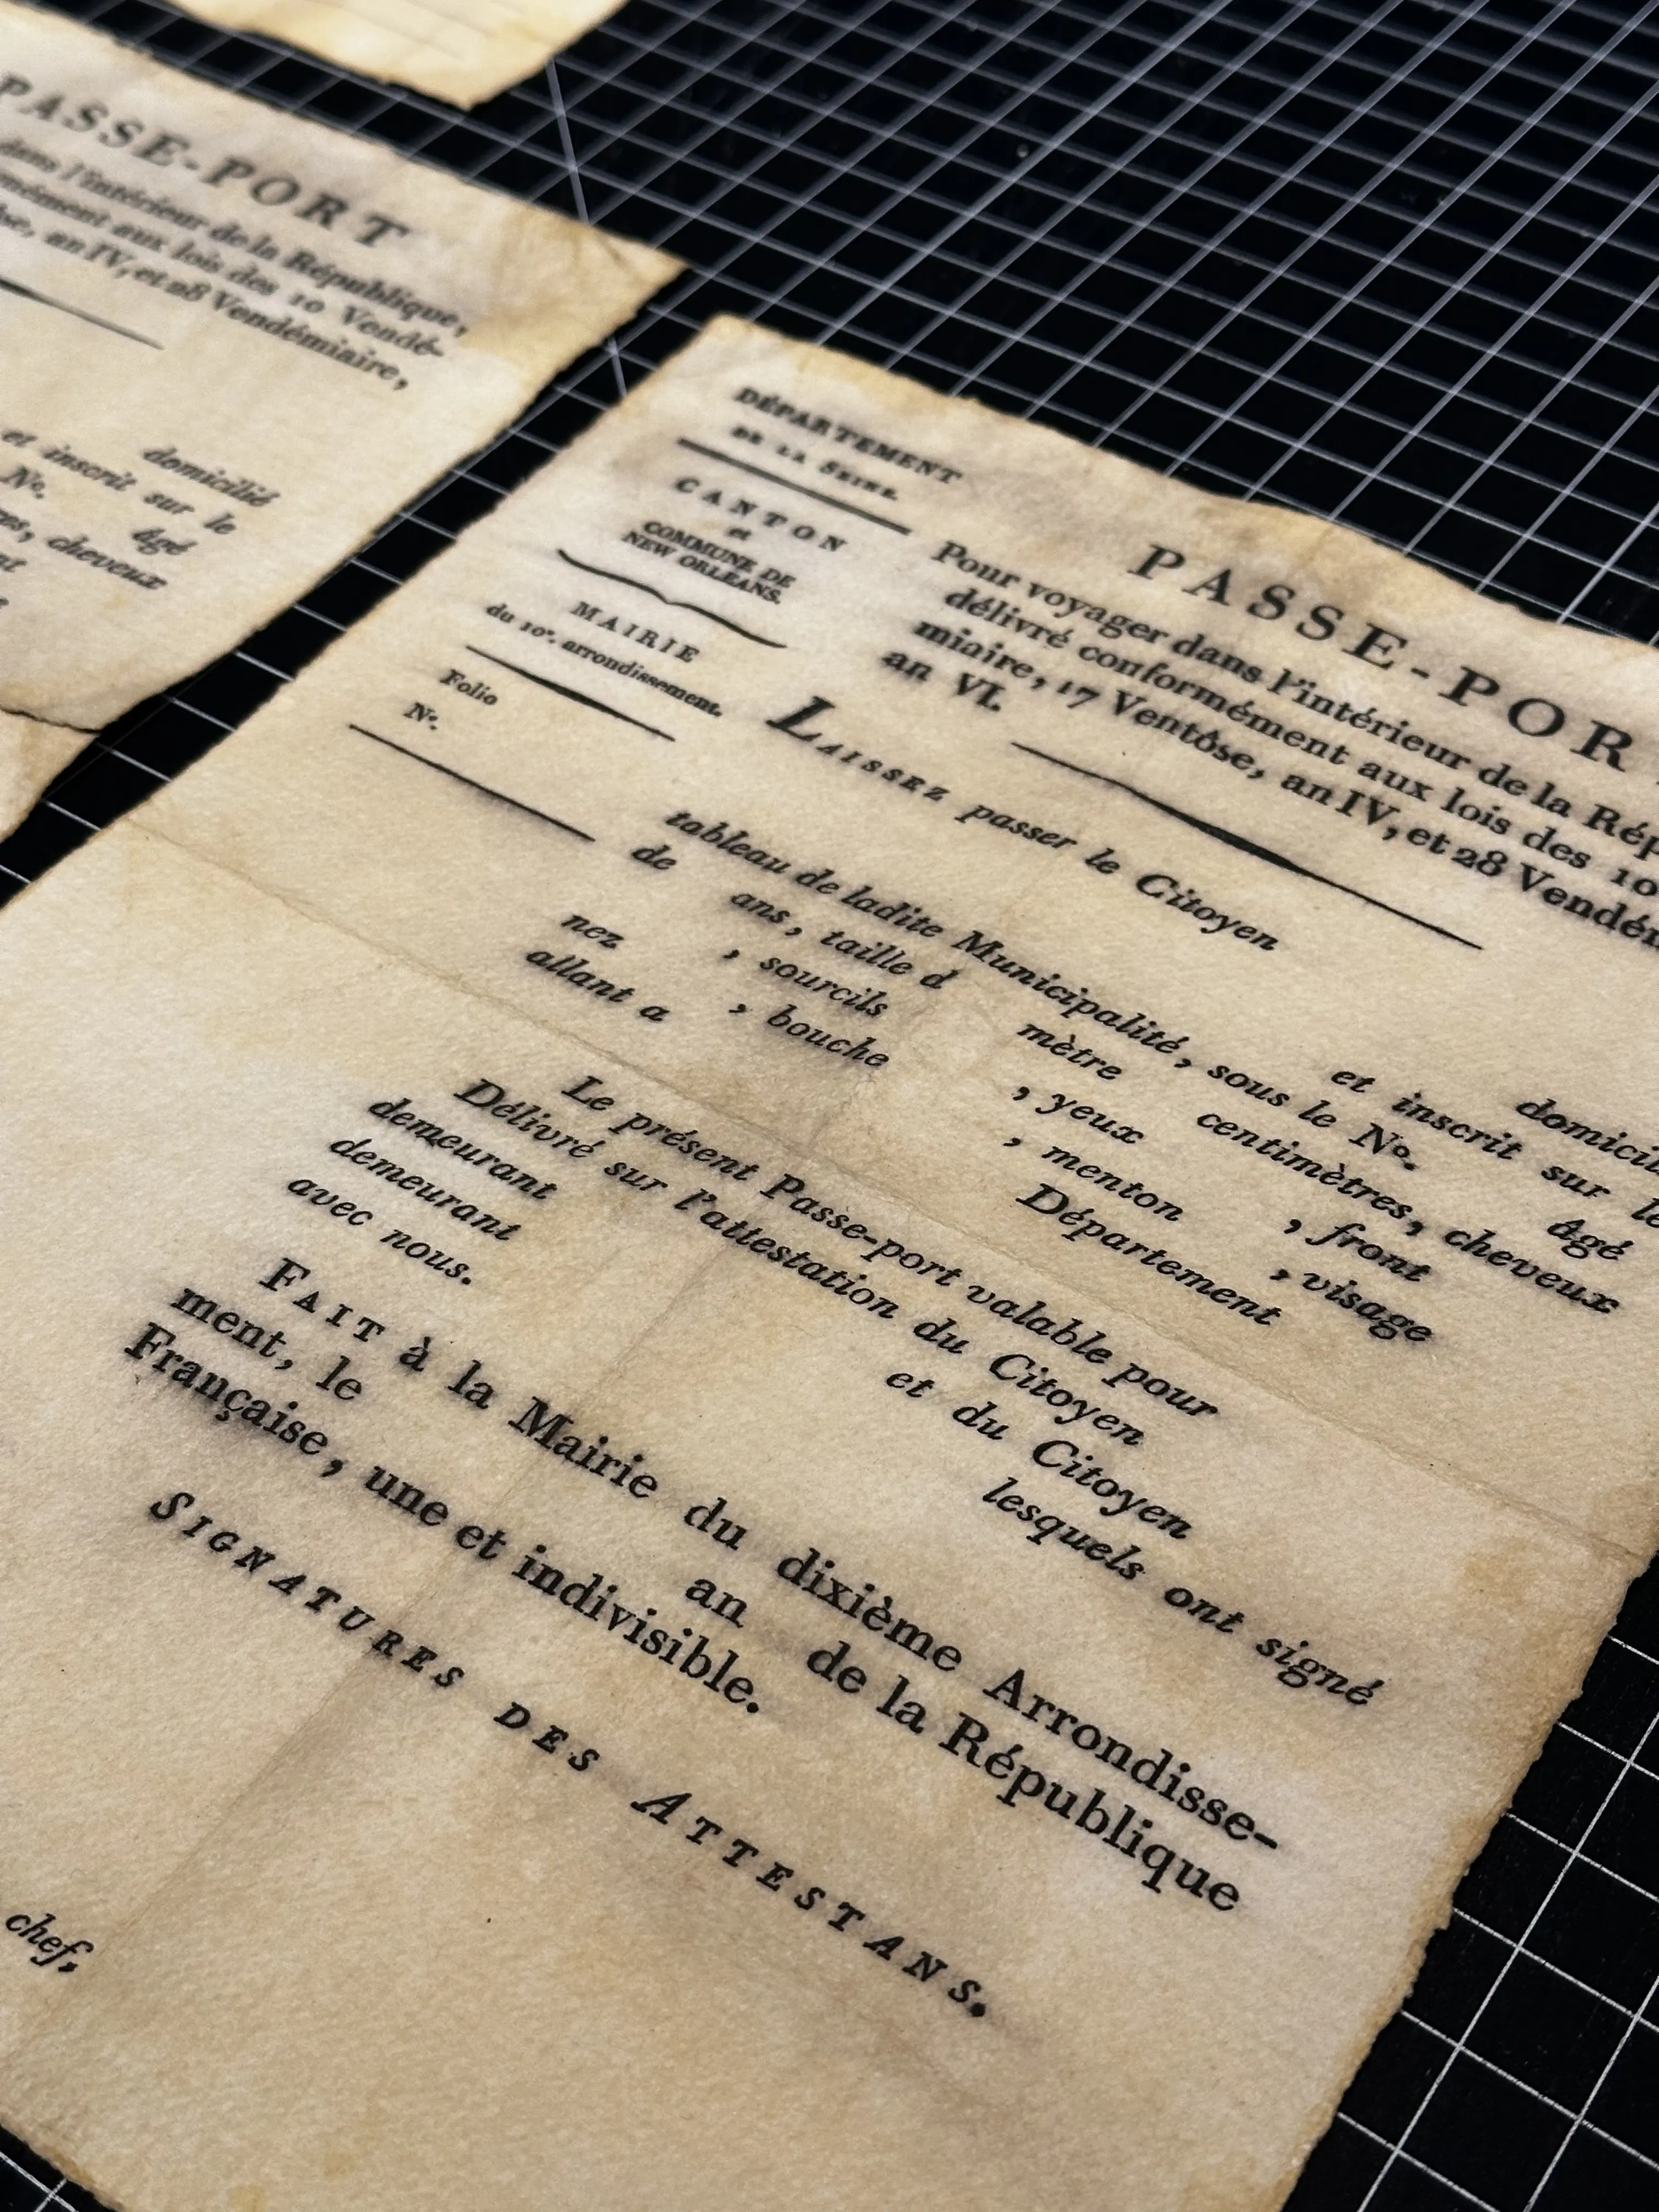 PASSE-PORT
dans l'intérieur de la République,
aux lois des 10 Vendé-
an IV, et 28 Vendémiaire,
domicilié
et inscrit sur le
No. âgé
cheveux
DÉPARTEMENT
DE LA SEINE.
CANTON
et
COMMUNE DE
NEW ORLÉANS.
MAIRIE
du 10e. arrondissement.
Folio
No.
PASSE-POR
Pour voyager dans l'intérieur de la Rép
délivré conformément aux lois des 10
miaire, 17 Ventôse, an IV, et 28 Vendém
an VI.
LAISSEZ passer le Citoyen
domicil
et inscrit sur le
tableau de ladite Municipalité, sous le No. âgé
de ans, taille d mètre centimètres, cheveux
, sourcils , yeux , front
nez , bouche , menton , visage
allant a Département
Le présent Passe-port valable pour
Délivré sur l'attestation du Citoyen
demeurant et du Citoyen
demeurant lesquels ont signé
avec nous.
FAIT à la Mairie du dixième Arrondisse-
ment, le an de la République
Française, une et indivisible.
SIGNATURES DES ATTESTANS.
chef,